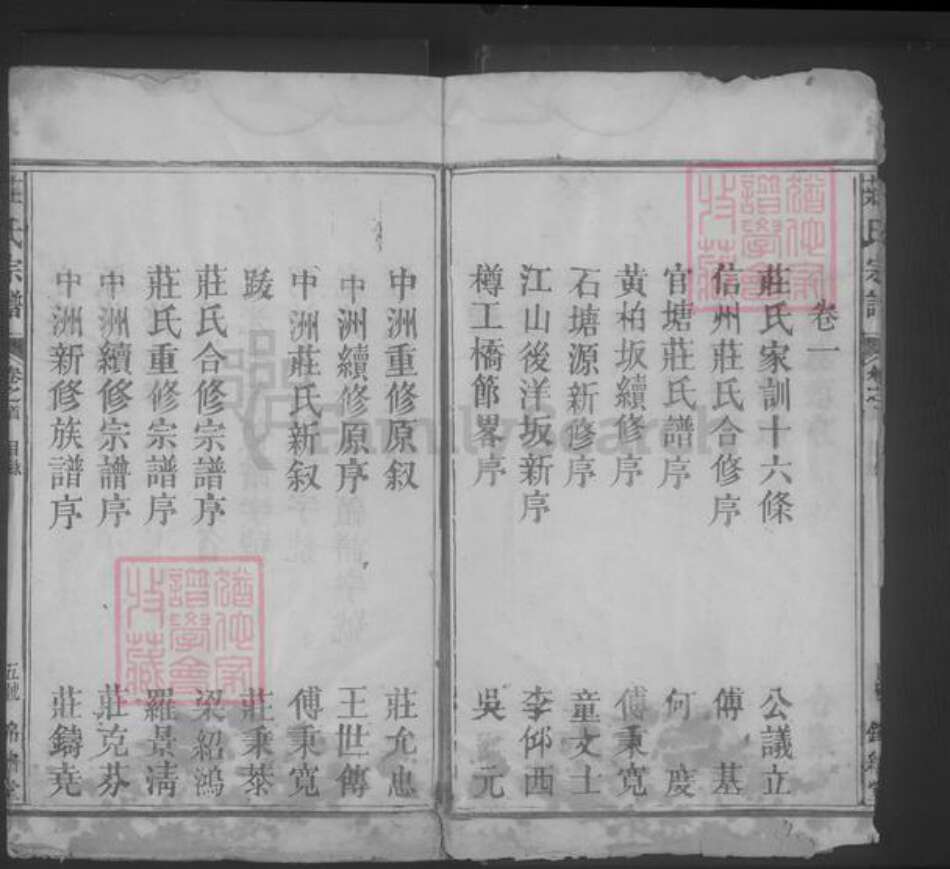 卷一
莊氏家訓十六條 公議立
信州莊氏合修序 傅基
官塘莊氏譜序 何度
黃柏坂續修序 傅秉寬
石塘源新修序 童文士
江山後洋坂新序 李邱西
樽工橋節畧序 吳元
中洲重修原叙 莊允忠
中洲續修原序 王世傳
中洲莊氏新叙 傅秉寬
跋 莊秉棻
莊氏合修宗譜序 梁紹鴻
莊氏重修宗譜序 羅景清
中洲續修宗譜序 莊克芬
中洲新修族譜序 莊鑄堯
氏宗譜 卷之首 目錄
FamilySearch